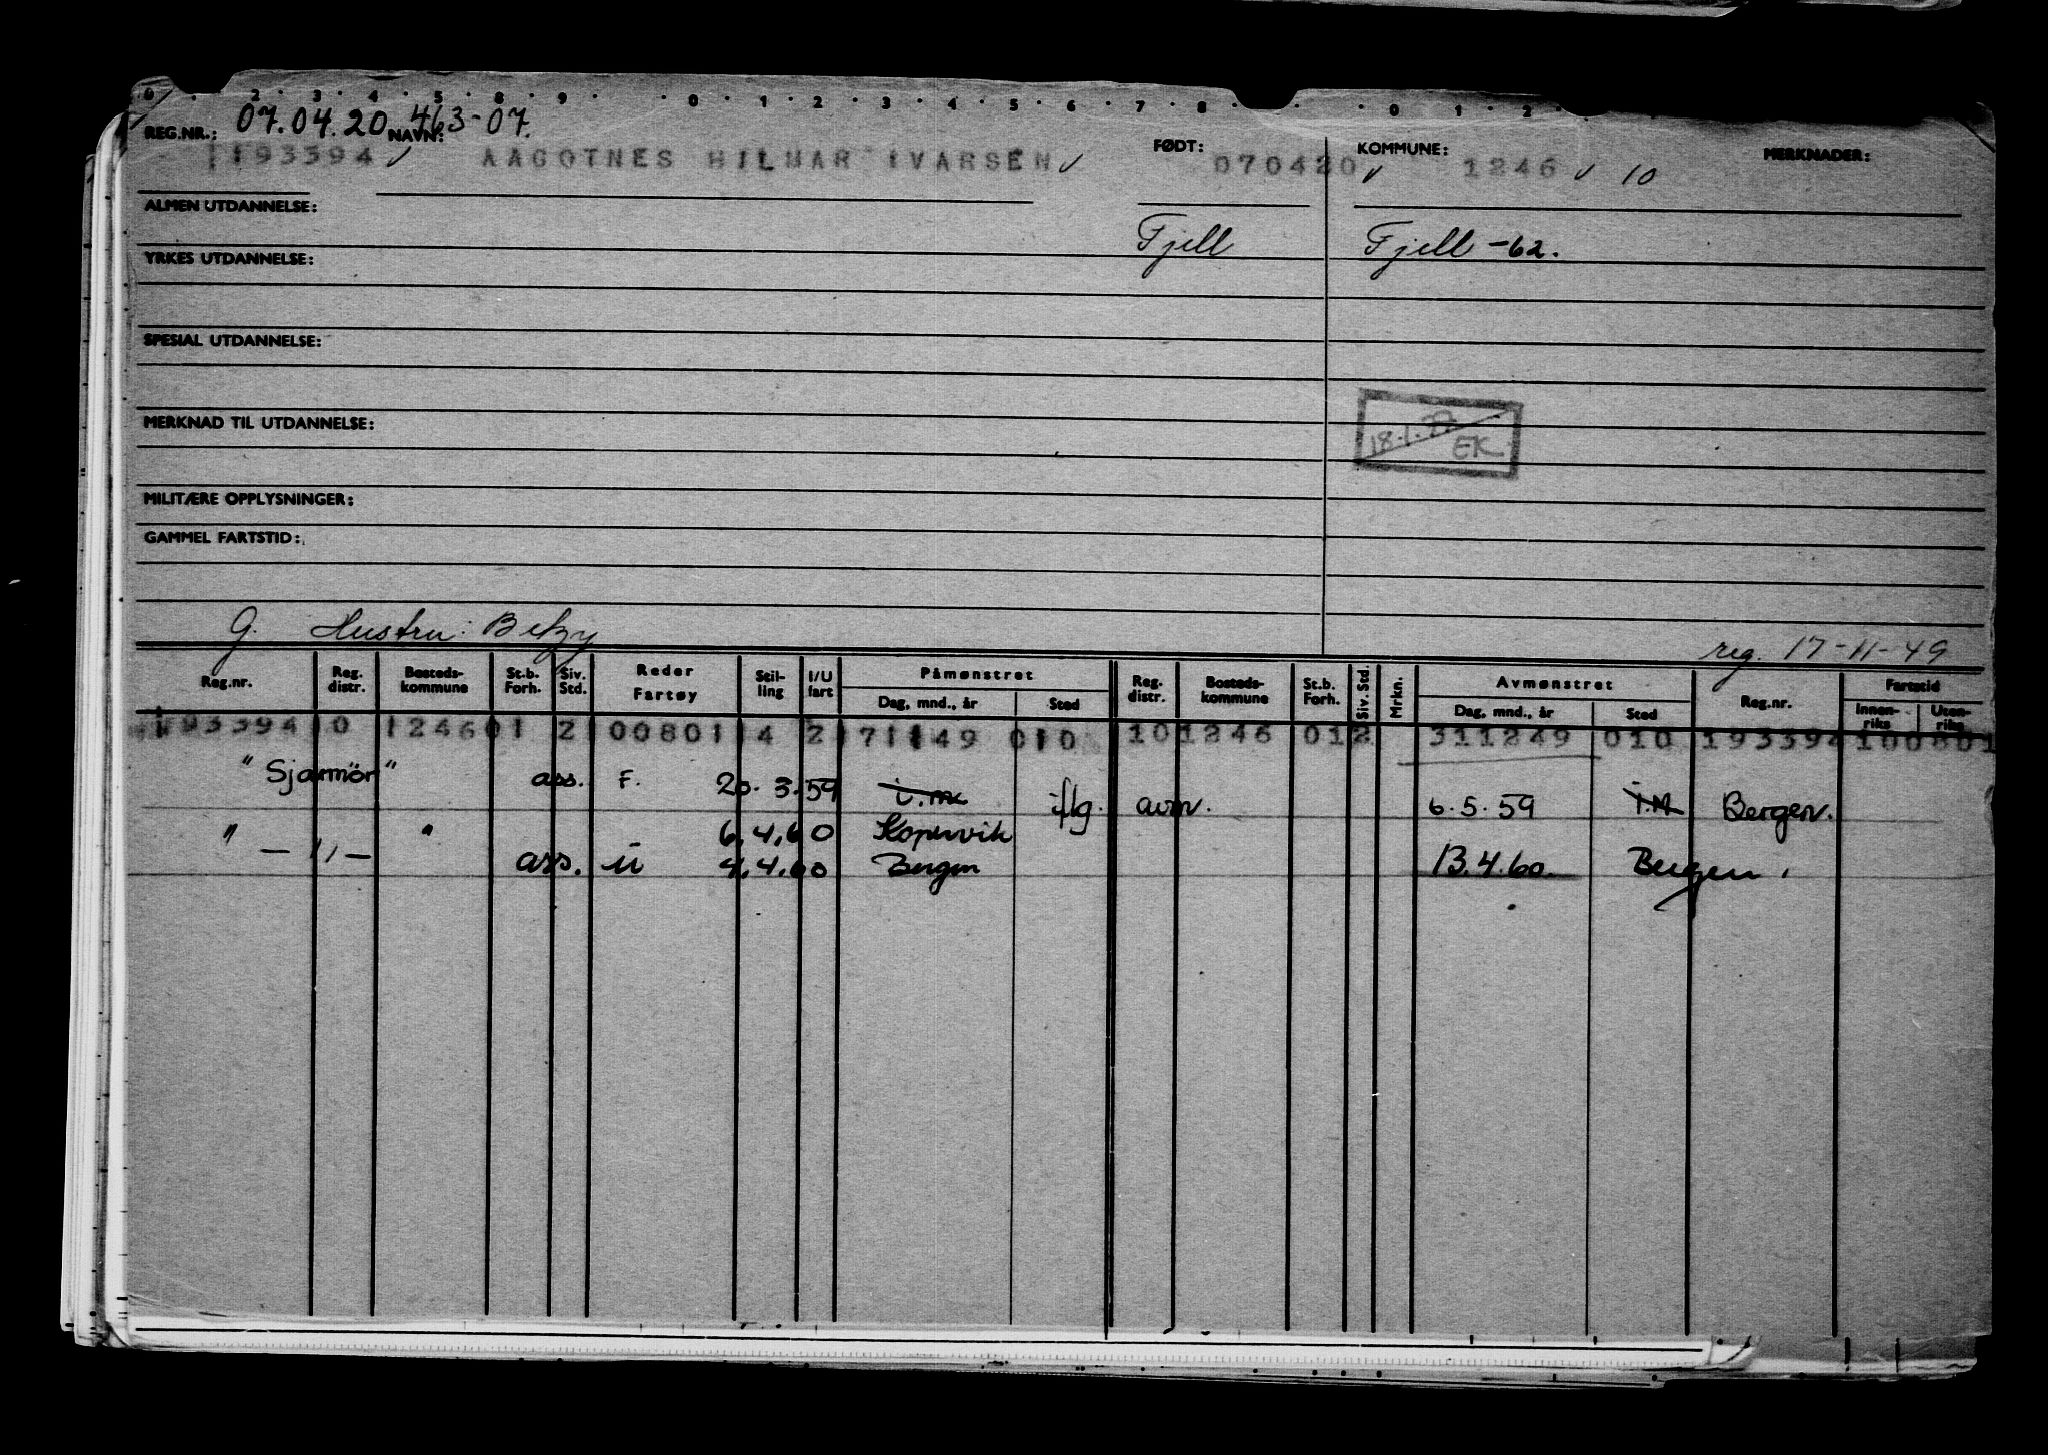 0 2 3 4 5 8 9 0 1 2 3 4 5 6 7 8 0 1 2
07.04.20 463-07.
REG.NR.: NAVN: FØDT: KOMMUNE: MERKNADER:
193394 AAGOTNES HILMAR IVARSEN 070420 1246 10
ALMEN UTDANNELSE:
Fjell Fjell -62.
YRKES UTDANNELSE:
SPESIAL UTDANNELSE:
MERKNAD TIL UTDANNELSE:
18.1.77 EK
MILITÆRE OPPLYSNINGER:
GAMMEL FARTSTID:
G. Hustru: Betzy
reg. 17-11-49
Reg.nr. Reg. distr. Bosteds- kommune St.b. Forh. Siv. Std. Reder Fartøy Stil- ling I/U fart Påmønstret Dag, mnd., år Sted Reg. distr. Bosteds- kommune St.b. Forh. Siv. Std. Mrkn. Avmønstret Dag, mnd., år Sted Reg.nr. Fartstid Innen- riks Uten- riks
193394 0 1246 01 2 00801 4 2 171149 010 10 1246 01 2 311249 010 193394 100801
"Sjømør" ass. F. 20.3.59 i.m. iflg. avm. 6.5.59 i.M. Bergen.
" " 6.4.60 Kopervik
— ,, — ass. u 4.4.60 Bergen 13.4.60. Bergen.